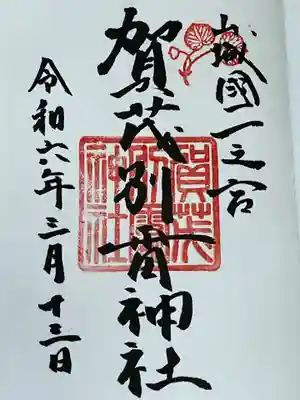 山城國一之宮
賀茂別雷神社
賀茂別雷神社
令和六年三月十三日